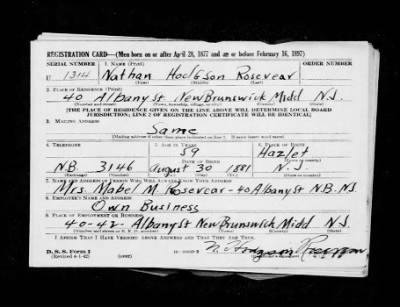 REGISTRATION CARD—(Men born on or after April 28, 1877 and on or before February 16, 1897)
SERIAL NUMBER 1. NAME (Print) ORDER NUMBER
U 1314 Nathan Hodgson Rosevear
(First) (Middle) (Last)
2. PLACE OF RESIDENCE (Print)
40 Albany St New Brunswick Midd N.J.
(Number and street) (Town, township, village, or city) (County) (State)
[THE PLACE OF RESIDENCE GIVEN ON THE LINE ABOVE WILL DETERMINE LOCAL BOARD
JURISDICTION; LINE 2 OF REGISTRATION CERTIFICATE WILL BE IDENTICAL]
3. MAILING ADDRESS
Same
(Mailing address if other than place indicated on line 2. If same insert word same)
4. TELEPHONE 5. AGE IN YEARS 6. PLACE OF BIRTH
59 Hazlet
DATE OF BIRTH
N.B. 3146 August 30 1881 N.J.
7. NAME AND ADDRESS OF PERSON WHO WILL ALWAYS KNOW YOUR ADDRESS
Mrs. Mabel M. Rosevear - 40 Albany St N.B. N.J.
8. EMPLOYER'S NAME AND ADDRESS
Own Business
9. PLACE OF EMPLOYMENT OR BUSINESS
40-42- Albany St New Brunswick Midd N.J
(Number and street or R. F. D. number) (Town) (County) (State)
I AFFIRM THAT I HAVE VERIFIED ABOVE ANSWERS AND THAT THEY ARE TRUE.
D. S. S. Form 1
(Revised 4-1-42) (over)
N. Hodgson Rosevear